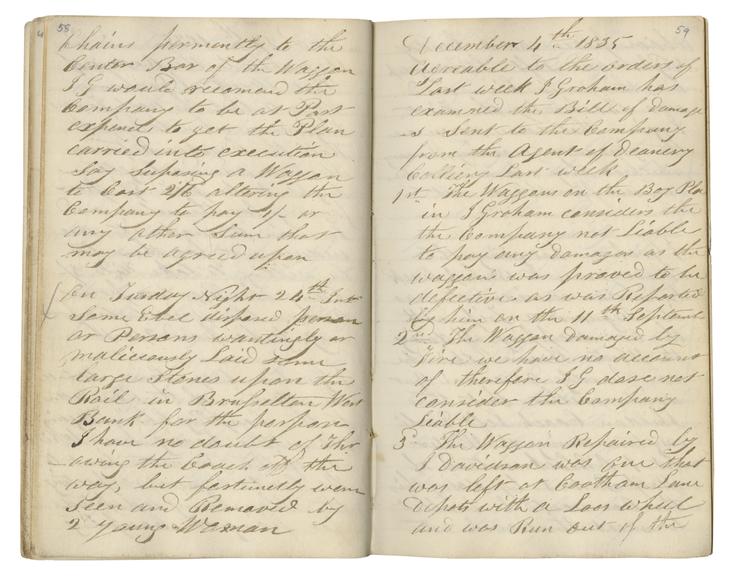 58
Chains permently to the
Center Bar of the Waggon
I G would recomend the
Company to be at Part
expence to get the Plan
carried into execution
Say Suposing a Waggon
to Cost 2/6 altering the
Company to pay 1/- or
any other Sum that
may be agreed upon
On Tuesday Night 24th Inst
Some Evel disposed person
or Persons wantingly or
maliceously Laid some
large Stones upon the
Rail in Brusselton West
Bank for the porpose
I have no doubt of Thr
owing the Coach off the
way, but fortunetly were
Seen and Removed by
2 young Woman
59
December 4th 1835
Agreable to the orders of
Last week J Graham has
examined the Bill of Damage
s Sent to the Company
from the Agent of Deanery
Colliery Last week
1st The Waggons on the Bay Pla
in J Graham considers the
the Company not Liable
to pay any damages as the
waggon was proved to be
defective as was Reported
by him on the 11th September
2nd The Waggon Damaged by
Fire we have no account
of therefore J G dose not
consider the Company
Liable
3 The Waggon Repaired by
J Davidson was one that
was left at Cootham Lane
depots with a Loos wheel
and was Run out of the